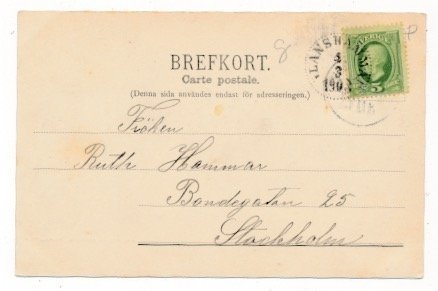 BREFKORT.
Carte postale.
(Denna sida användes endast för adresseringen.)
SVERIGE
5
4
3
Fröken
Ruth Hammar
Bondegatan 25
Stockholm